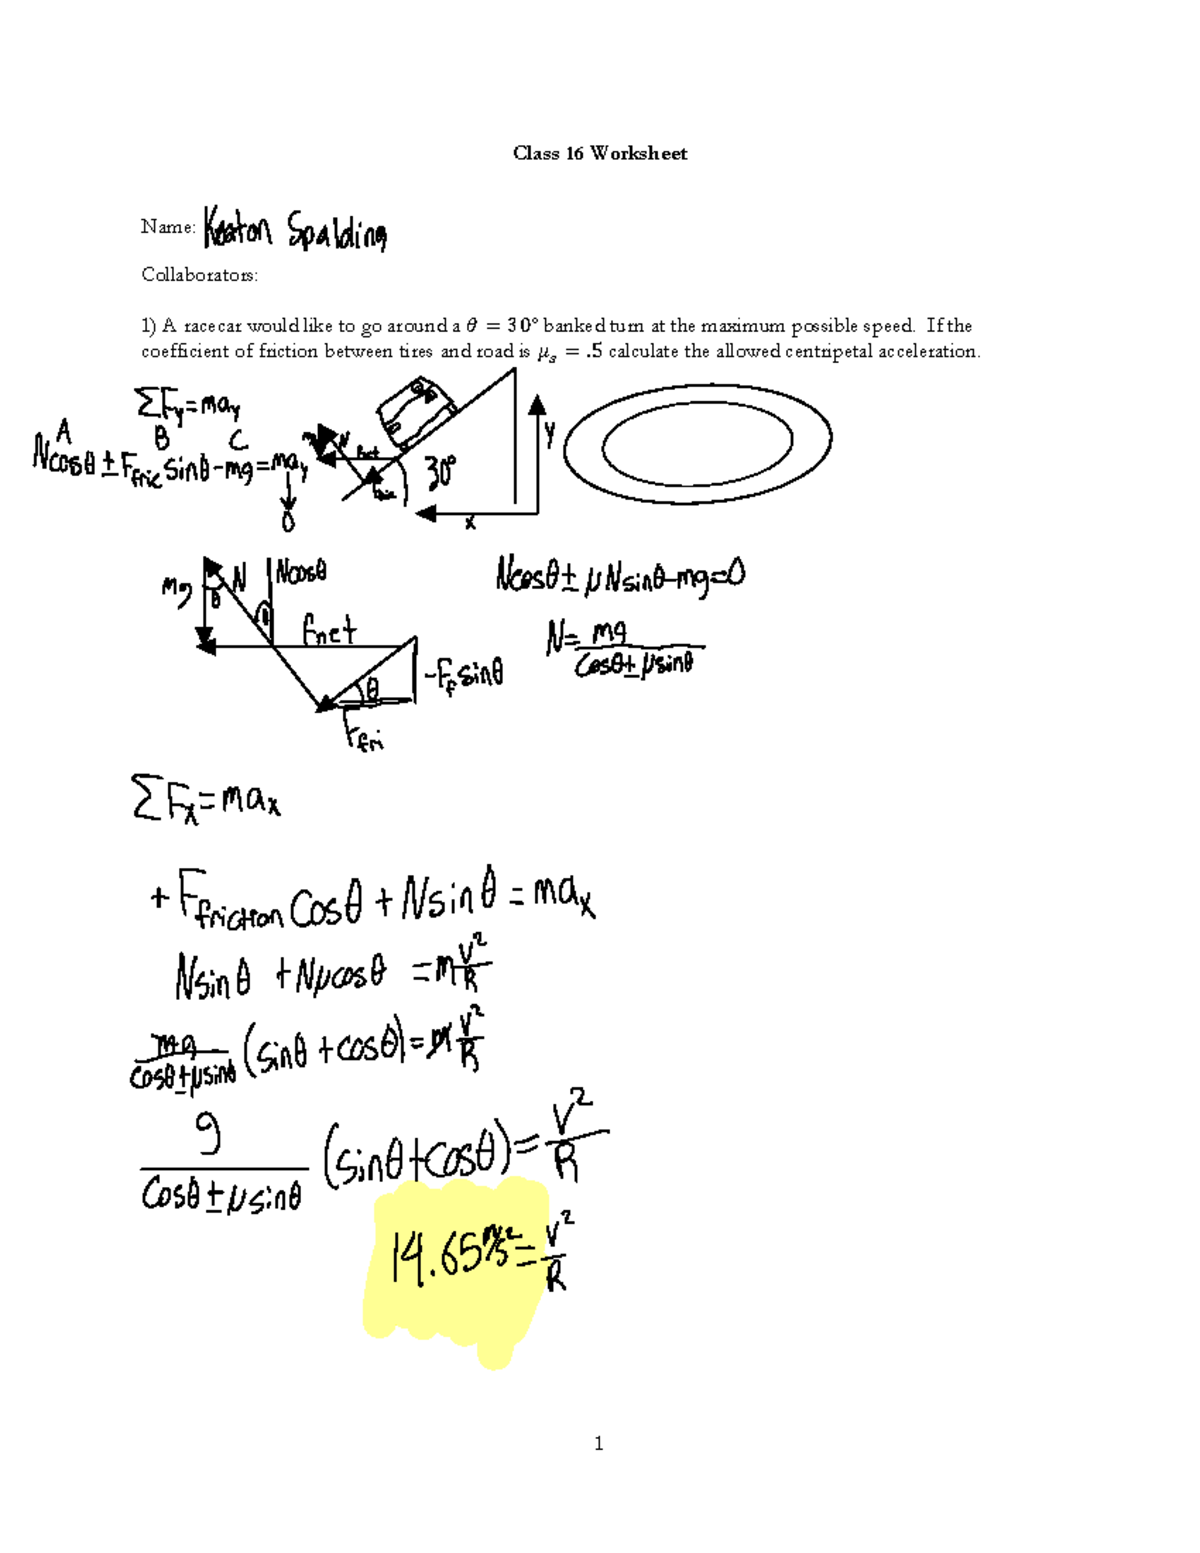 Class 16 Worksheet
Name: Keaton Spalding
Collaborators:
1) A racecar would like to go around a θ = 30° banked turn at the maximum possible speed. If the
coefficient of friction between tires and road is μₛ = .5 calculate the allowed centripetal acceleration.
ΣFy=may
A B C
Ncosθ ± Ffric sinθ - mg = may
0
N
Fnet
30°
y
x
mg
θ
N
Ncosθ
θ
Fnet
θ
-Ff sinθ
Ffri
Ncosθ ± μNsinθ-mg=0
N= mg / cosθ ± μsinθ
ΣFx=max
+ Ffriction Cosθ + Nsinθ = max
Nsinθ + Nμcosθ = m V²/R
mg / cosθ ± μsinθ (sinθ + cosθ) = m V²/R
g / cosθ ± μsinθ (sinθ + cosθ) = V²/R
14.65 m/s² = V²/R
1